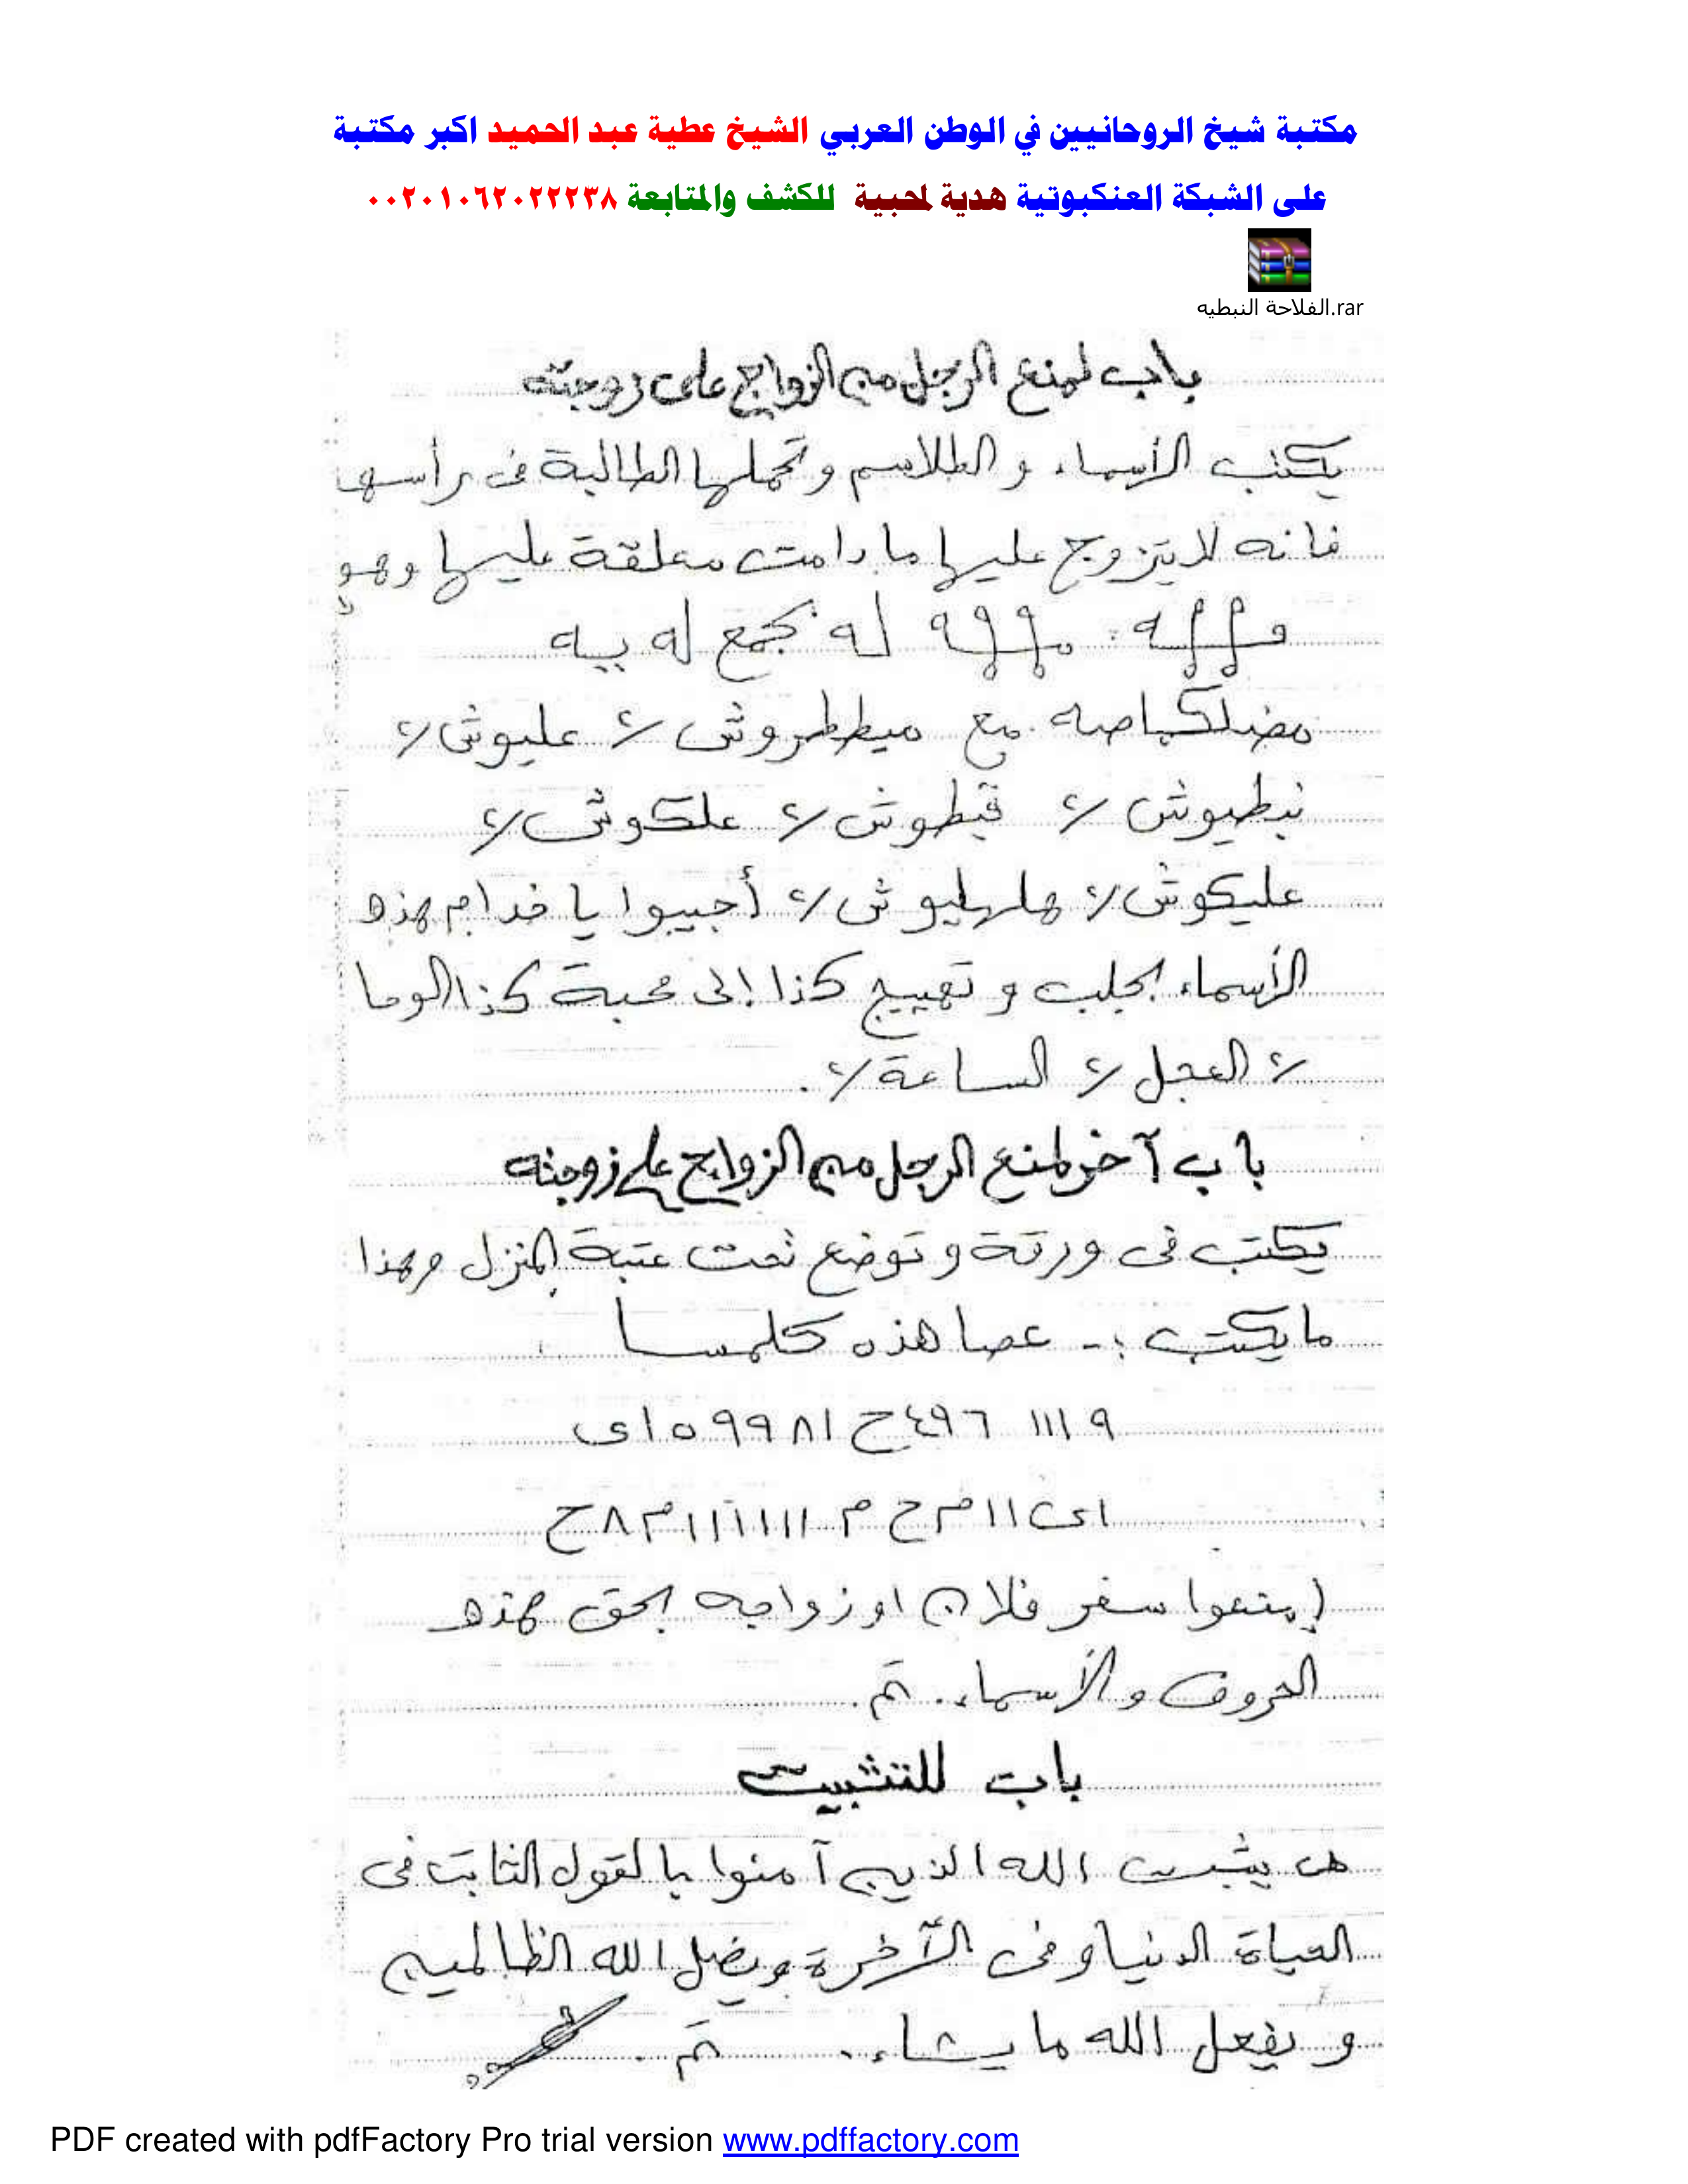 مكتبة شيخ الروحانيين في الوطن العربي الشيخ عطية عبد الحميد اكبر مكتبة
على الشبكة العنكبوتية هدية لمحبية للكشف والمتابعة ٠٠٢٠١٠٦٢٠٢٢٢٣٨
الفلاحة النبطيه.rar
باب لمنع الرجل من الزواج على زوجته
يكتب الأسماء والطلاسم وتحملها الطالبة فى رأسها
فانه لا يتزوج عليها ما دامت معلقة عليها وهو
له بجمع له بيه
مع ميططروش ٢/ عليوش ٢/
نبطيوش ٢/ قبطوش ٢/ علكوش ٢/
عليكوش ٢/ هلهليوش ٢/ أجيبوا يا خدام هذه
الأسماء بجلب و تهييج كذا إلى محبة كذا الوحا
٢/ العجل ٢/ الساعة ٢/.
باب آخر لمنع الرجل من الزواج على زوجته
يكتب فى ورقة و توضع تحت عتبة المنزل وهذا
ما يكتب :- عصا هذه كلمسا
٩ ١١١ ٤٩٦ ح ٩٩٨١ ٥ ا ى
ا ى ١١ م ح م ١١١١١١١ م ٨ ح
امنعوا سفر فلان او زواجه بحق هذه
الحروف والأسماء. تم.
باب للتثبيت
يثبت الله الذين آمنوا بالقول الثابت فى
الحياة الدنيا وفى الآخرة ويضل الله الظالمين
و يفعل الله ما يشاء.. تم.
PDF created with pdfFactory Pro trial version www.pdffactory.com